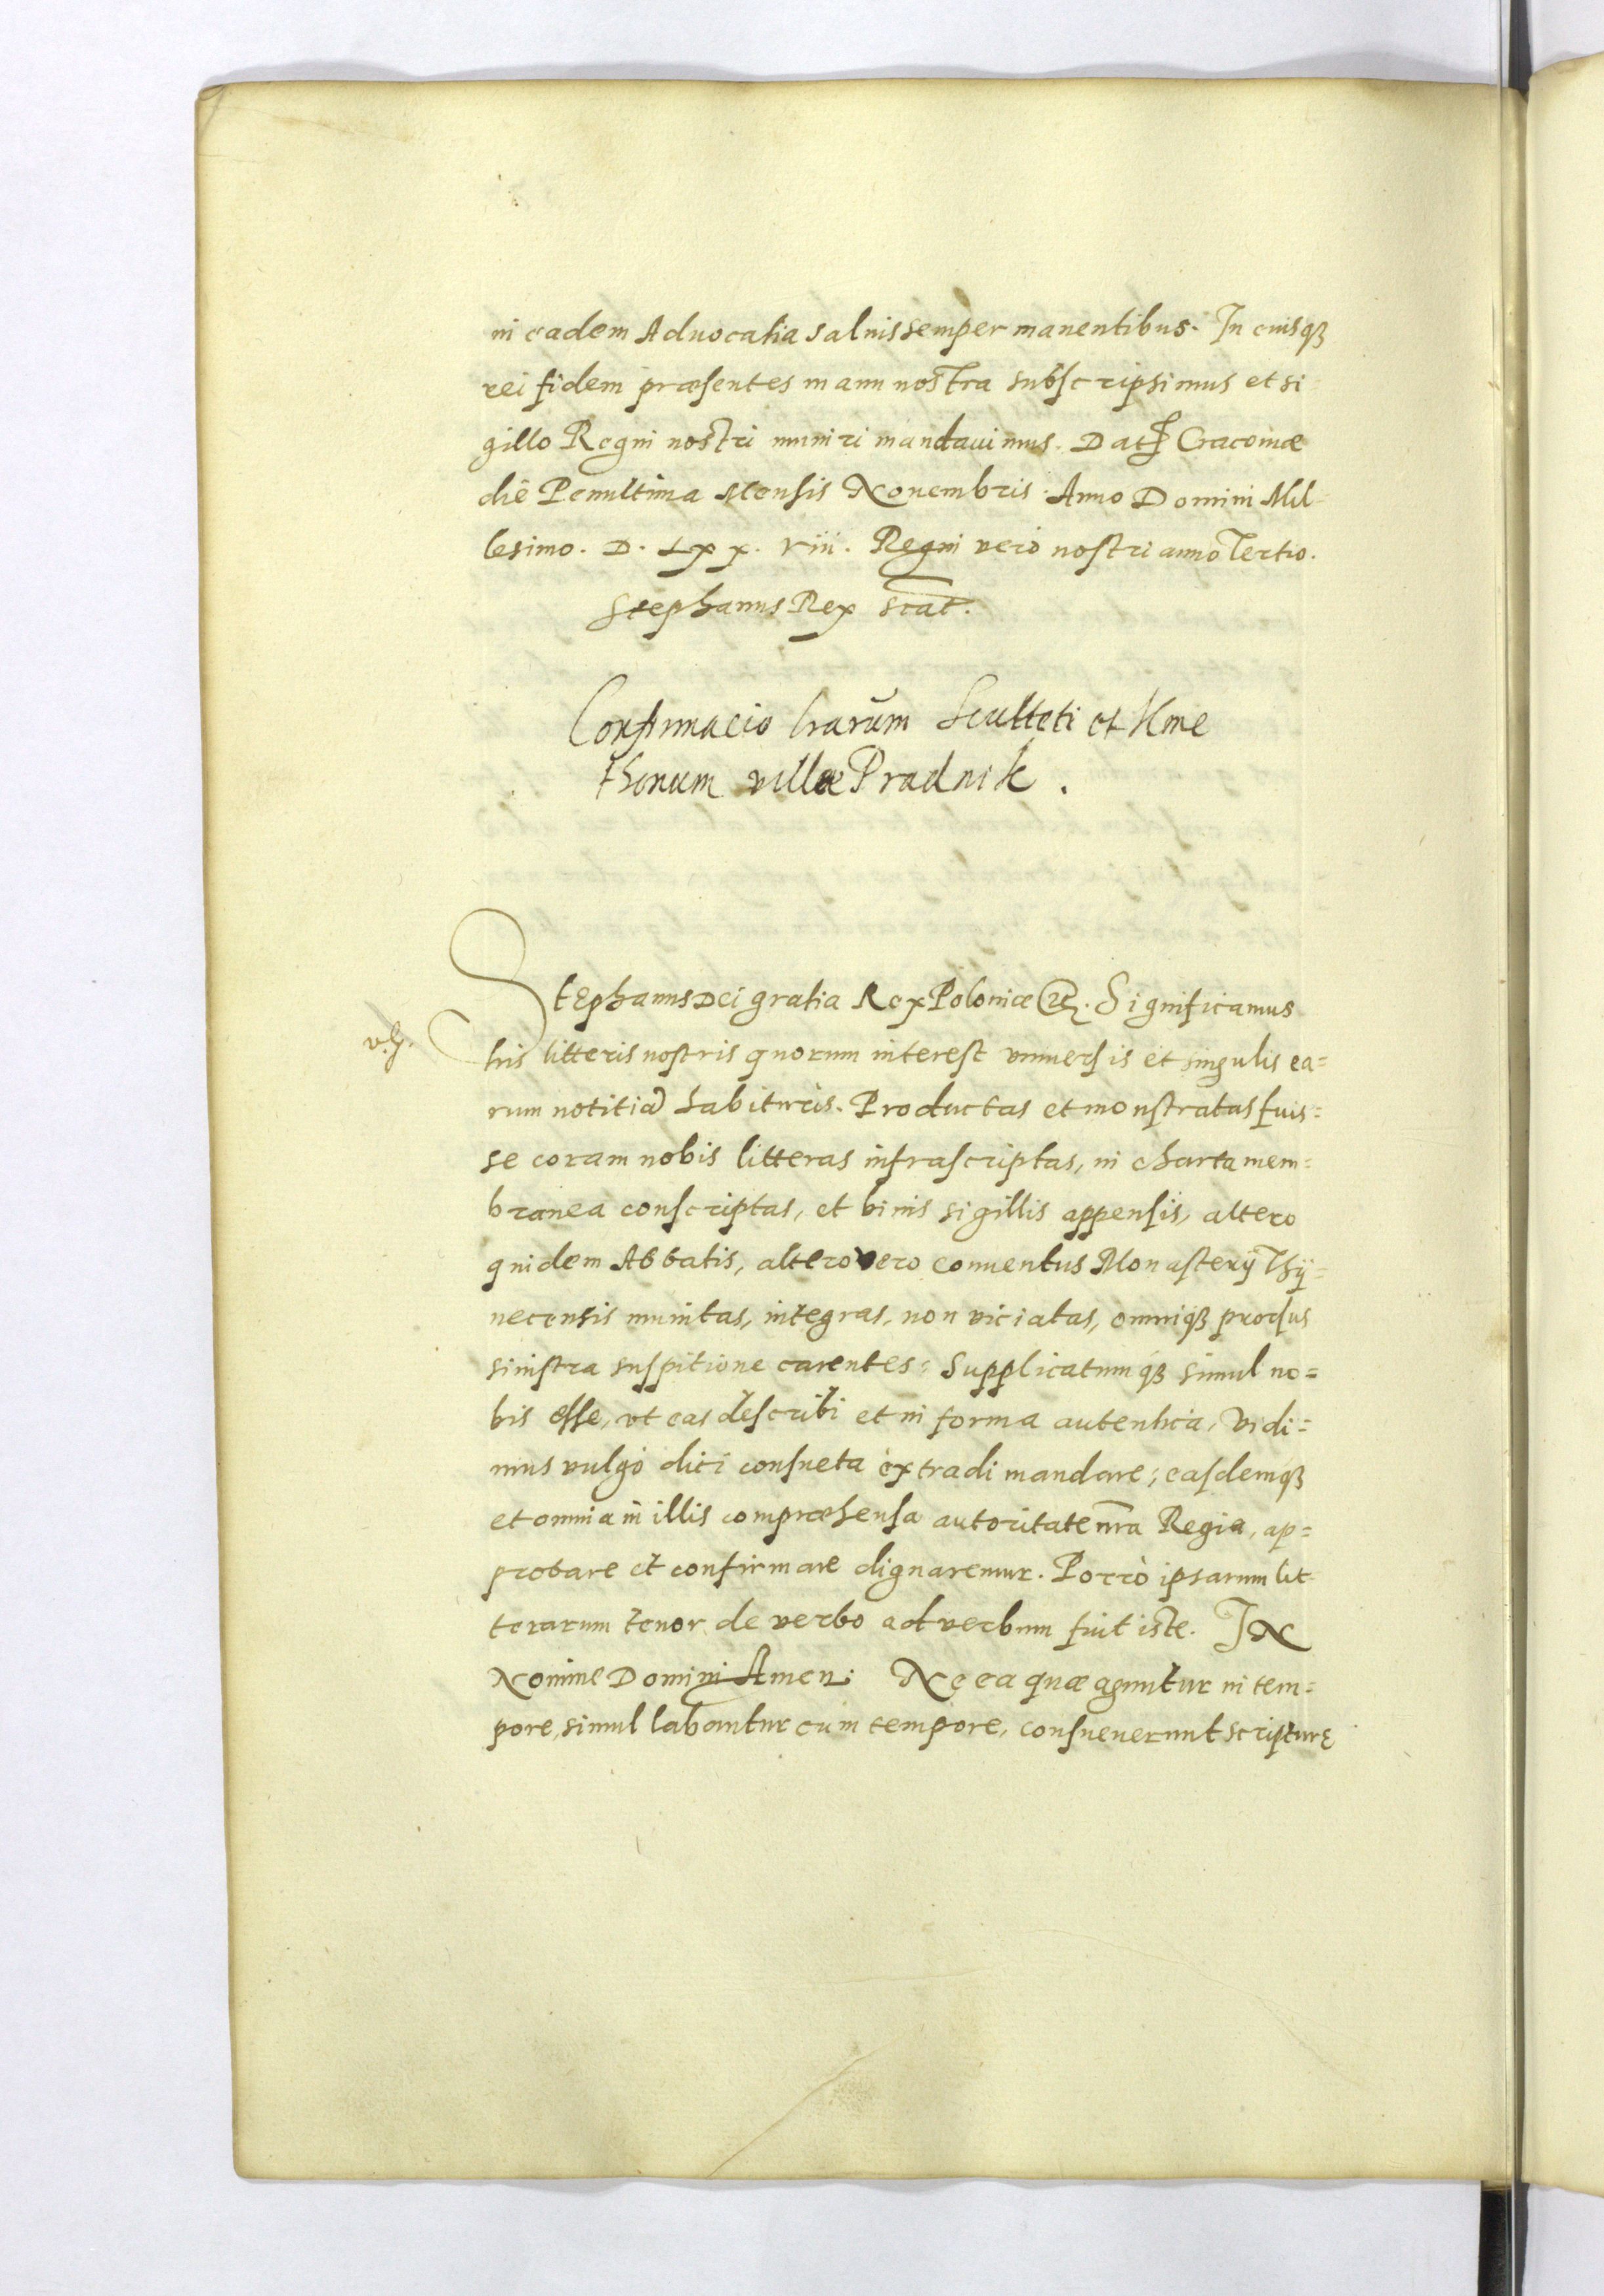 in eadem Aduocatia saluis semper manentibus. In cuisq3
rei fidem præsentes manu nostra subscripsimus et si
gillo Regni nostri muniri mandauimus. Dat Cracouiæ
die Penultima Mensis Nouembris. Anno Domini Mil
lesimo. D. Lxx. viii. Regni verò nostri anno Tertio.
Stephanus Rex scat.
Confirmacio lrarum Sculteti et Kme
thonum villæ Pradnik.
Stephanus Dei gratia Rex Poloniæ etc. Significamus
his litteris nostris quorum interest vniuersis et singulis ea=
rum notitiã habituris. Productas et monstratas fuis=
se coram nobis litteras infrascriptas, in charta mem=
branea conscriptas, et binis sigillis appensis, altero
quidem Abbatis, altero vero conuentus Monasterÿ Thÿ=
necensis munitas, integras, non viciatas, omniq3 prorsus
sinistra suspitione carentes: Supplicatumq3 simul no=
bis esse, vt eas describi et in forma autentica, Vidi=
mus vulgò dici consueta extradi mandare; easdemq3
et omnia in illis compræhensa autoritate nrã Regia, ap=
probare et confirmare dignaremur. Porrò ipsarum lit
terarum tenor de verbo ad verbum fuit iste. IN
Nomine Domini Amen: Ne ea quæ aguntur in tem=
pore, simul labantur cum tempore, consueuerunt scripturę